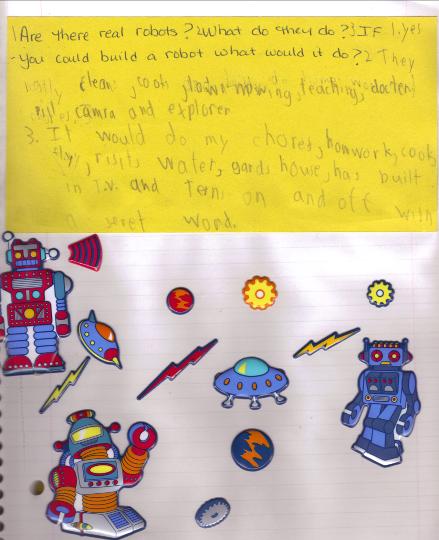 1 Are there real robots? 2 What do they do? 3 If 1. yes
you could build a robot what would it do? 2 They
clean, cook, lawn mowing, teaching,
camra and explorer
3. It would do my chores, homwork, cook
fly, risits water, gards house, has built
in T.V. and Terns on and off with
secret word.